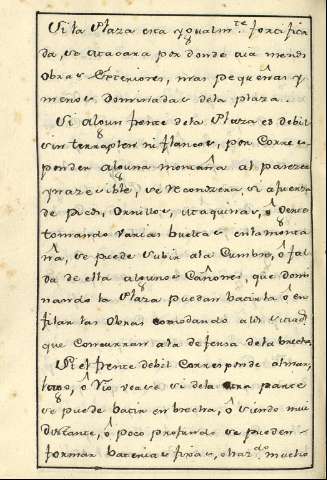 Si la Plaza esta ygualm.te fortifica
da, se atacara por donde aia menos
Obras Exteriores, mas pequeñas y
menos Dominadas de la plaza.
Si algun frente de la Plaza es debil
sin terraplen ni flancos, por Corres
ponder alguna montaña al parezer
ynazesible, se reconozera, si a fuerza
de picos, Ornillos,
tomando varias bueltas en la monta
ña, se puede subir a la Cumbre, ô fal
da de ella algunos Cañones, que domi
nando la Plaza puedan batirla ô en
filar las Obras comodando a los sitiad.s
que Concurran a la defensa de la brecha,
Si el frente debil Corresponde al mar,
lago, ô Rio, vease si de la otra parte
se puede batir en brecha, ô siendo mui
distante, ô poco profundo se pueden
formar baterias fixas, echando mucho